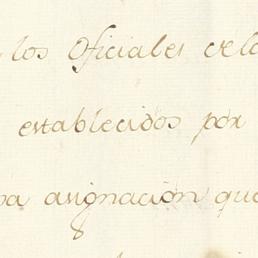 los Oficiales
establecidos por
asignacion que